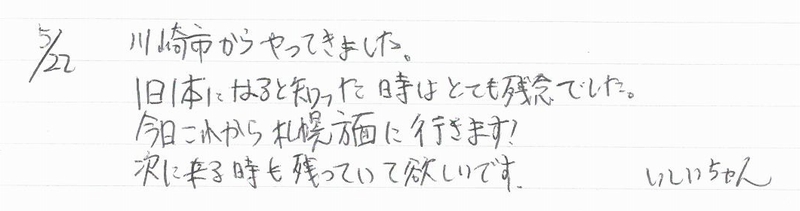 5/22 川崎市からやってきました。
1日1本になると知った時はとても残念でした。
今日これから札幌方面に行きます!
次に来る時も残っていて欲しいです。
いしいちゃん